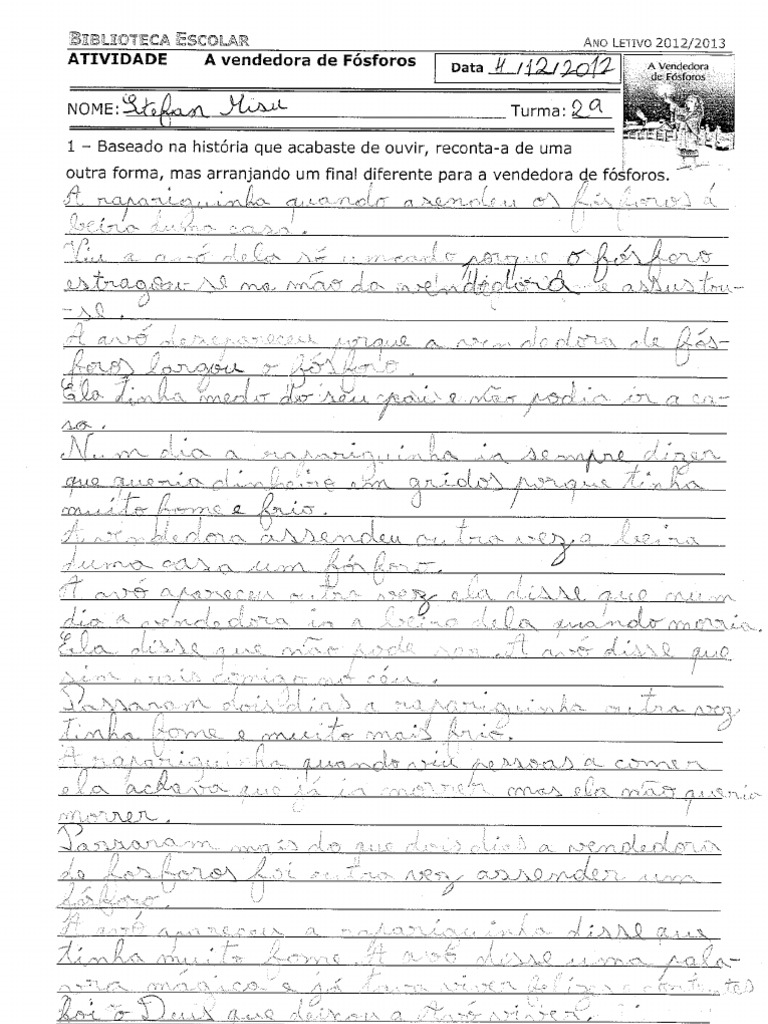 BIBLIOTECA ESCOLAR
ANO LETIVO 2012/2013
ATIVIDADE A vendedora de Fósforos
Data 4/12/2012
A Vendedora
de Fósforos
NOME: Stefan Misu
Turma: 2ª
1 – Baseado na história que acabaste de ouvir, reconta-a de uma
outra forma, mas arranjando um final diferente para a vendedora de fósforos.
A rapariguinha quando asendeu os fósforos á
beira duma casa.
Viu a avó dela só um cado porque o fósforo
estragou-se na mão da vendedora e assustou-
-se.
A avó desepareceu porque a vendedora de fós-
foros largou o fósforo.
Ela tinha medo do seu pai e não podia ir a ca-
sa.
Num dia a rapariguinha ia sempre dizer
que queria dinheiro em gridos porque tinha
muito fome e frio.
A vendedora assendeu outra vez a beira
duma casa um fósforo.
A avó apareceu outra vez ela disse que num
dia a vendedora ia a beira dela quando morria.
Ela disse que não pode ser. A avó disse que
sim vais comigo no céu.
Passaram dois dias a rapariguinha outra vez
tinha fome e muito mais frio.
A rapariguinha quando viu pessoas a comer
ela achava que já ia morrer mas ela não queria
morrer.
Passaram mais do que dois dias a vendedora
de fosforos foi outra vez assender um
fósforo.
A avó apareceu a rapariguinha disse que
tinha muito fome. A avó disse uma pala-
vra mágica e já viver felizes contentes
foi o Deus que deixou a Avó viver.